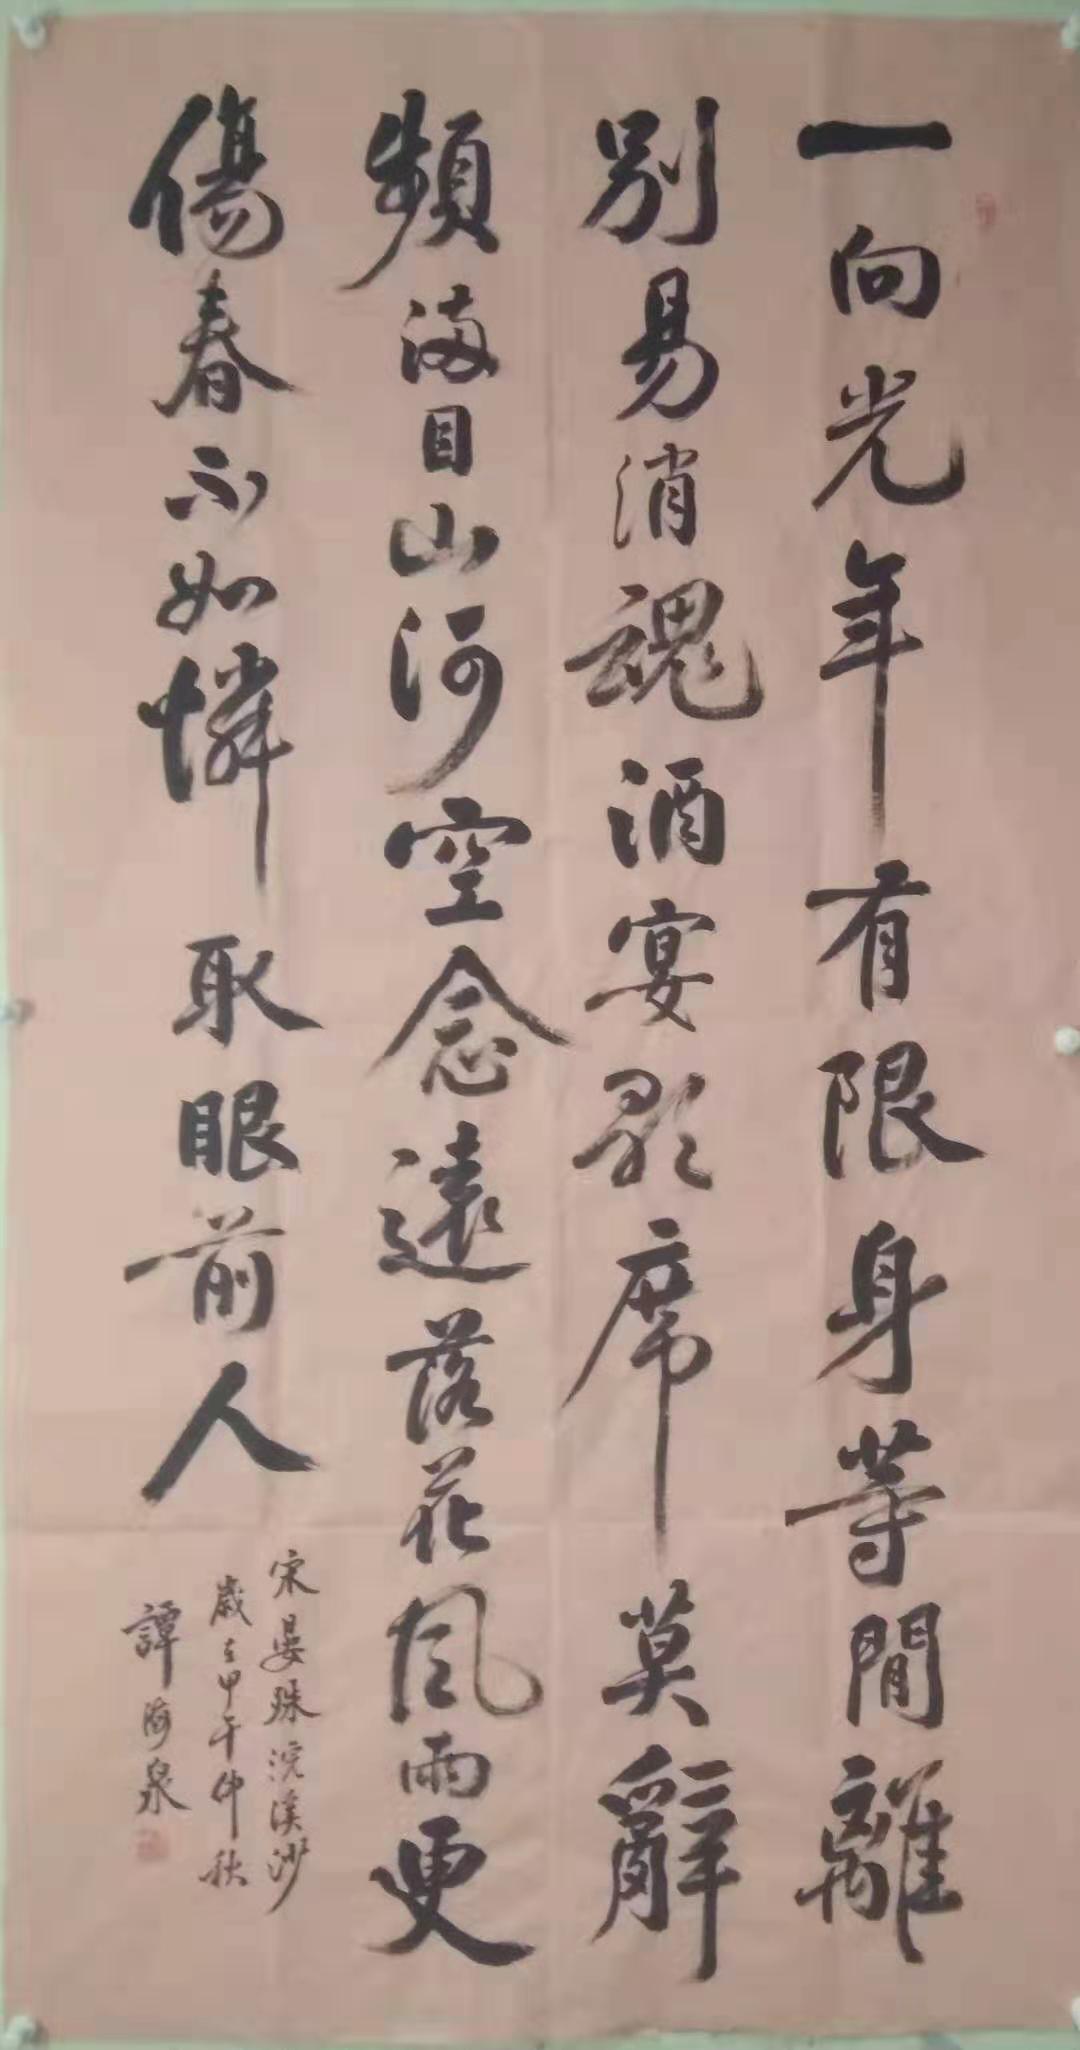 一向光年有限身等閒離
別易消魂酒宴歌席莫辭
頻滿目山河空念遠落花風雨更
傷春不如憐取眼前人
宋晏殊浣溪沙
歲在甲午仲秋
譚海泉